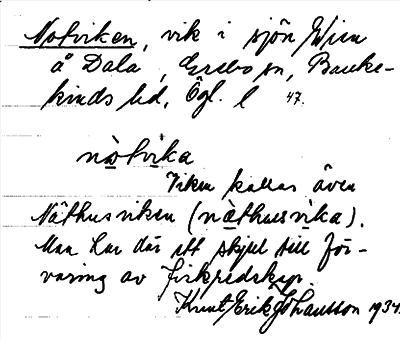 Notviken, vik i sjön Wien
å Dala, Grebo sn, Banke-
kinds hd, Ögl. l 47.
nòtvika
Viken kallas även
Näthusviken (nä̀thusvìka).
Man har där ett skjul till för-
varing av fiskredskap.
Knut Erik Johansson 1934.